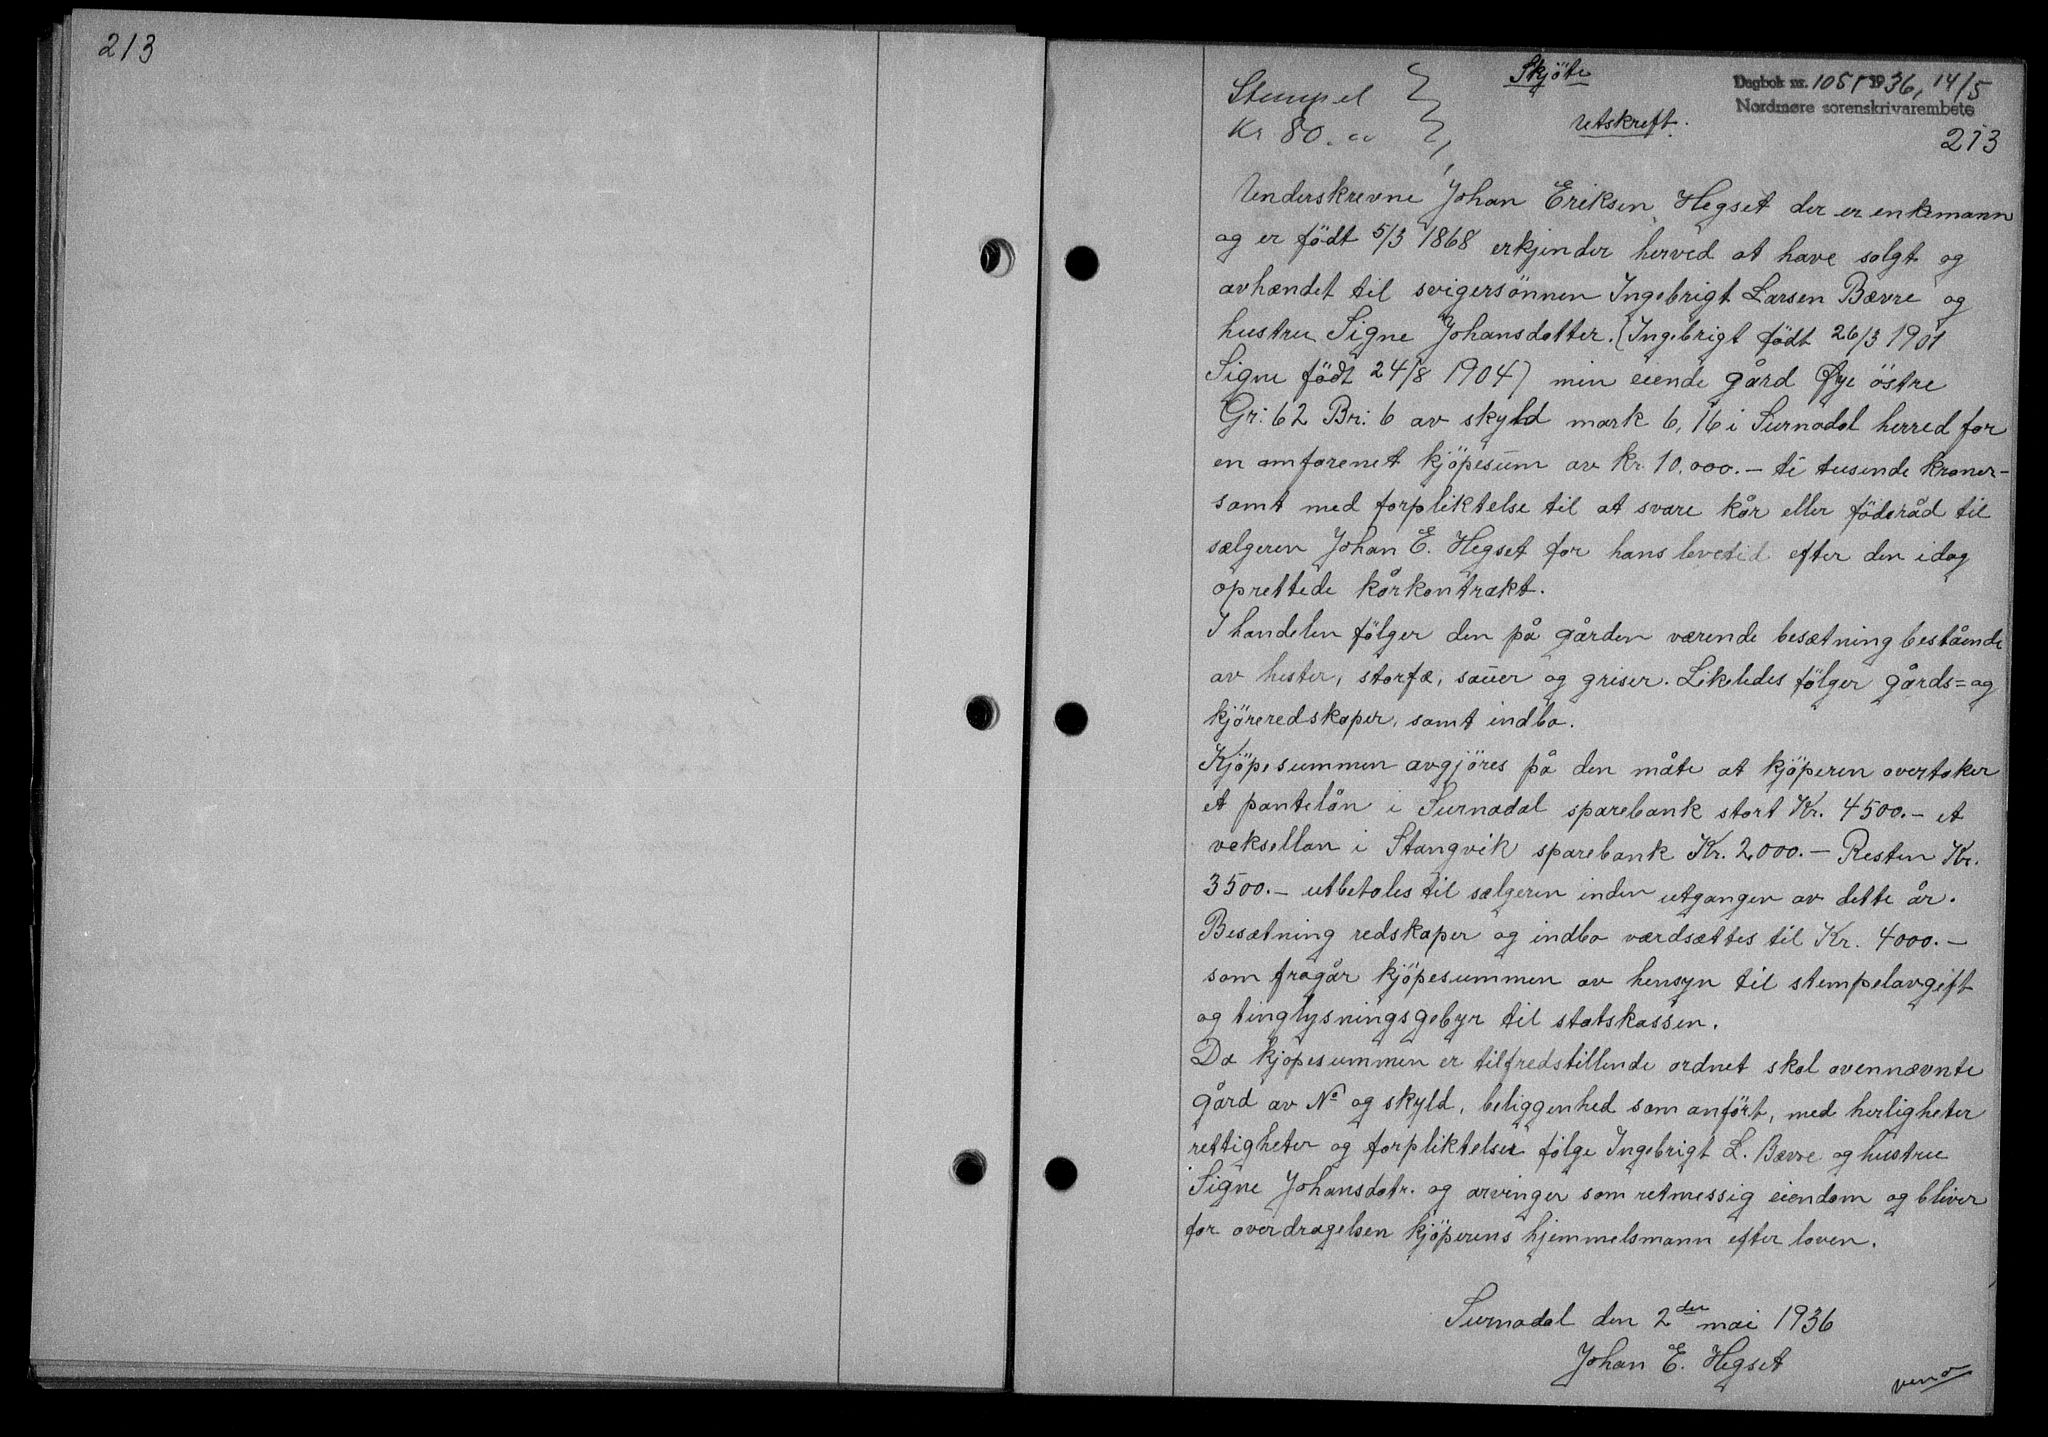 213
Skjöte
Dagbok nr. 1051 1936, 14/5
Nordmøre sorenskrivarembete
Stempel
Kr 80.00
Utskrift.
213
Underskrevne Johan Eriksen Hegset der er enkemann
og er födt 5/3 1868 erkjender herved at have solgt og
avhændet til svigersönnen Ingebrigt Larsen Bævre og
hustru Signe Johansdotter. (Ingebrigt födt 26/3 1901
Signe födt 24/8 1904) min eiende gård Øye östre
Gr: 62 Br: 6 av skyld mark 6,16 i Surnadal herred for
en omforenet kjöpesum av kr. 10,000.- ti tusende kroner-
samt med forpliktelse til at svare kår eller föderåd til
sælgeren Johan E. Hegset for hans levetid efter den idag
oprettede kårkontrakt.
I handelen fölger den på gården værende besætning bestående
av hester, storfæ, sauer og griser. Likeledes fölger gårds= og
kjöreredskaper, samt indbo.
Kjöpesummen avgjöres på den måte at kjöperen overtaker
et pantelån i Surnadal sparebank stort Kr. 4500.- et
veksellan i Stangvik sparebank Kr. 2000.- Resten Kr.
3500.- utbetales til sælgeren inden utgangen av dette år.
Besætning redskaper og indbo værdsættes til Kr. 4000.-
som fragår kjöpesummen av hensyn til stempelavgift
og tinglysningsgebyr til statskassen.
Da kjöpesummen er tilfredstillende ordnet skal ovennævnte
gård av No og skyld, beliggenhed som anfört, med herligheter
rettigheter og forpliktelser fölge Ingebrigt L. Bævre og hustru
Signe Johansdotr. og arvinger som retmessig eiendom og bliver
for overdragelsen kjöperens hjemmelsmann efter loven.
Surnadal den 2den mai 1936
Johan E. Hegset